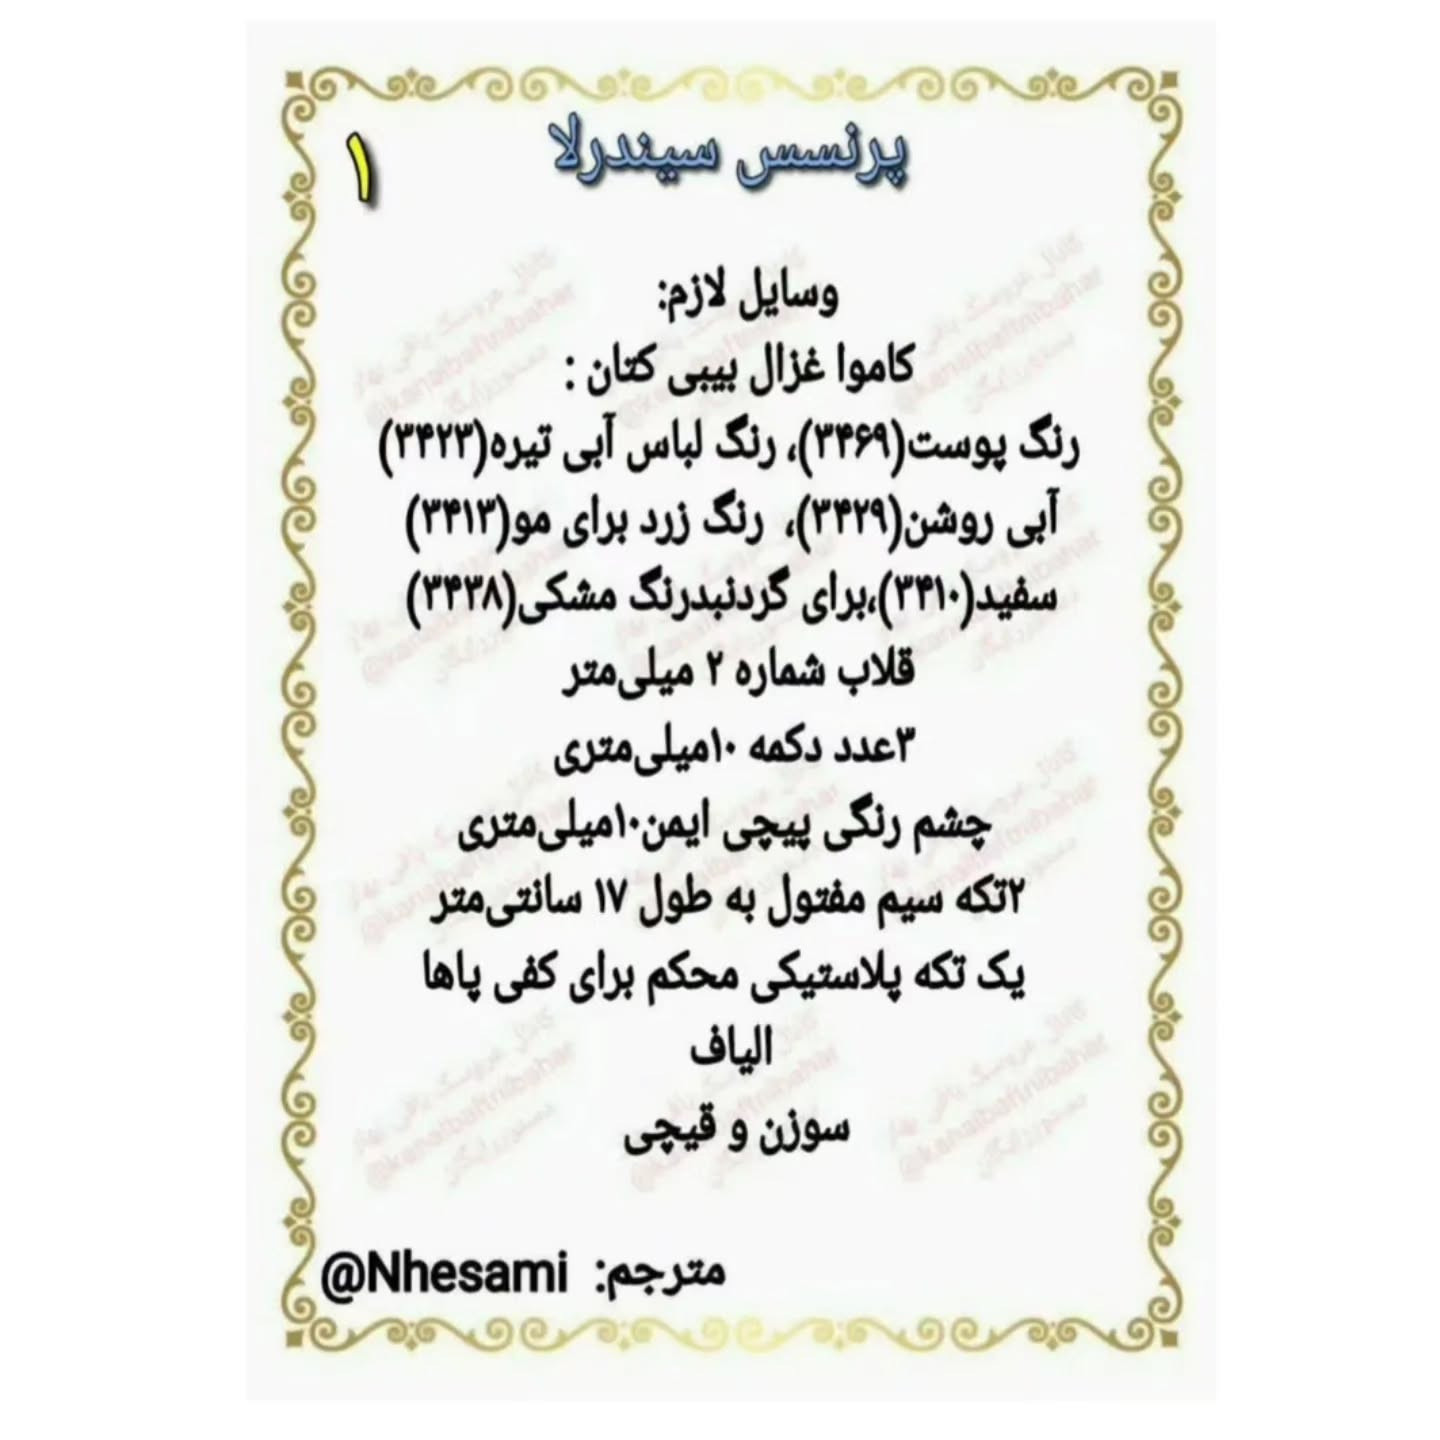 پرنسس سیندرلا
۱
وسایل لازم:
کاموا غزال بیبی کتان :
رنگ پوست(۳۴۶۹)، رنگ لباس آبی تیره(۳۴۲۳)
آبی روشن(۳۴۲۹)، رنگ زرد برای مو(۳۴۱۳)
سفید(۳۴۱۰)،برای گردنبدرنگ مشکی(۳۴۳۸)
قلاب شماره ۲ میلی‌متر
۳عدد دکمه ۱۰میلی‌متری
چشم رنگی پیچی ایمن۱۰میلی‌متری
۲تکه سیم مفتول به طول ۱۷ سانتی‌متر
یک تکه پلاستیکی محکم برای کفی پاها
الیاف
سوزن و قیچی
مترجم: @Nhesami